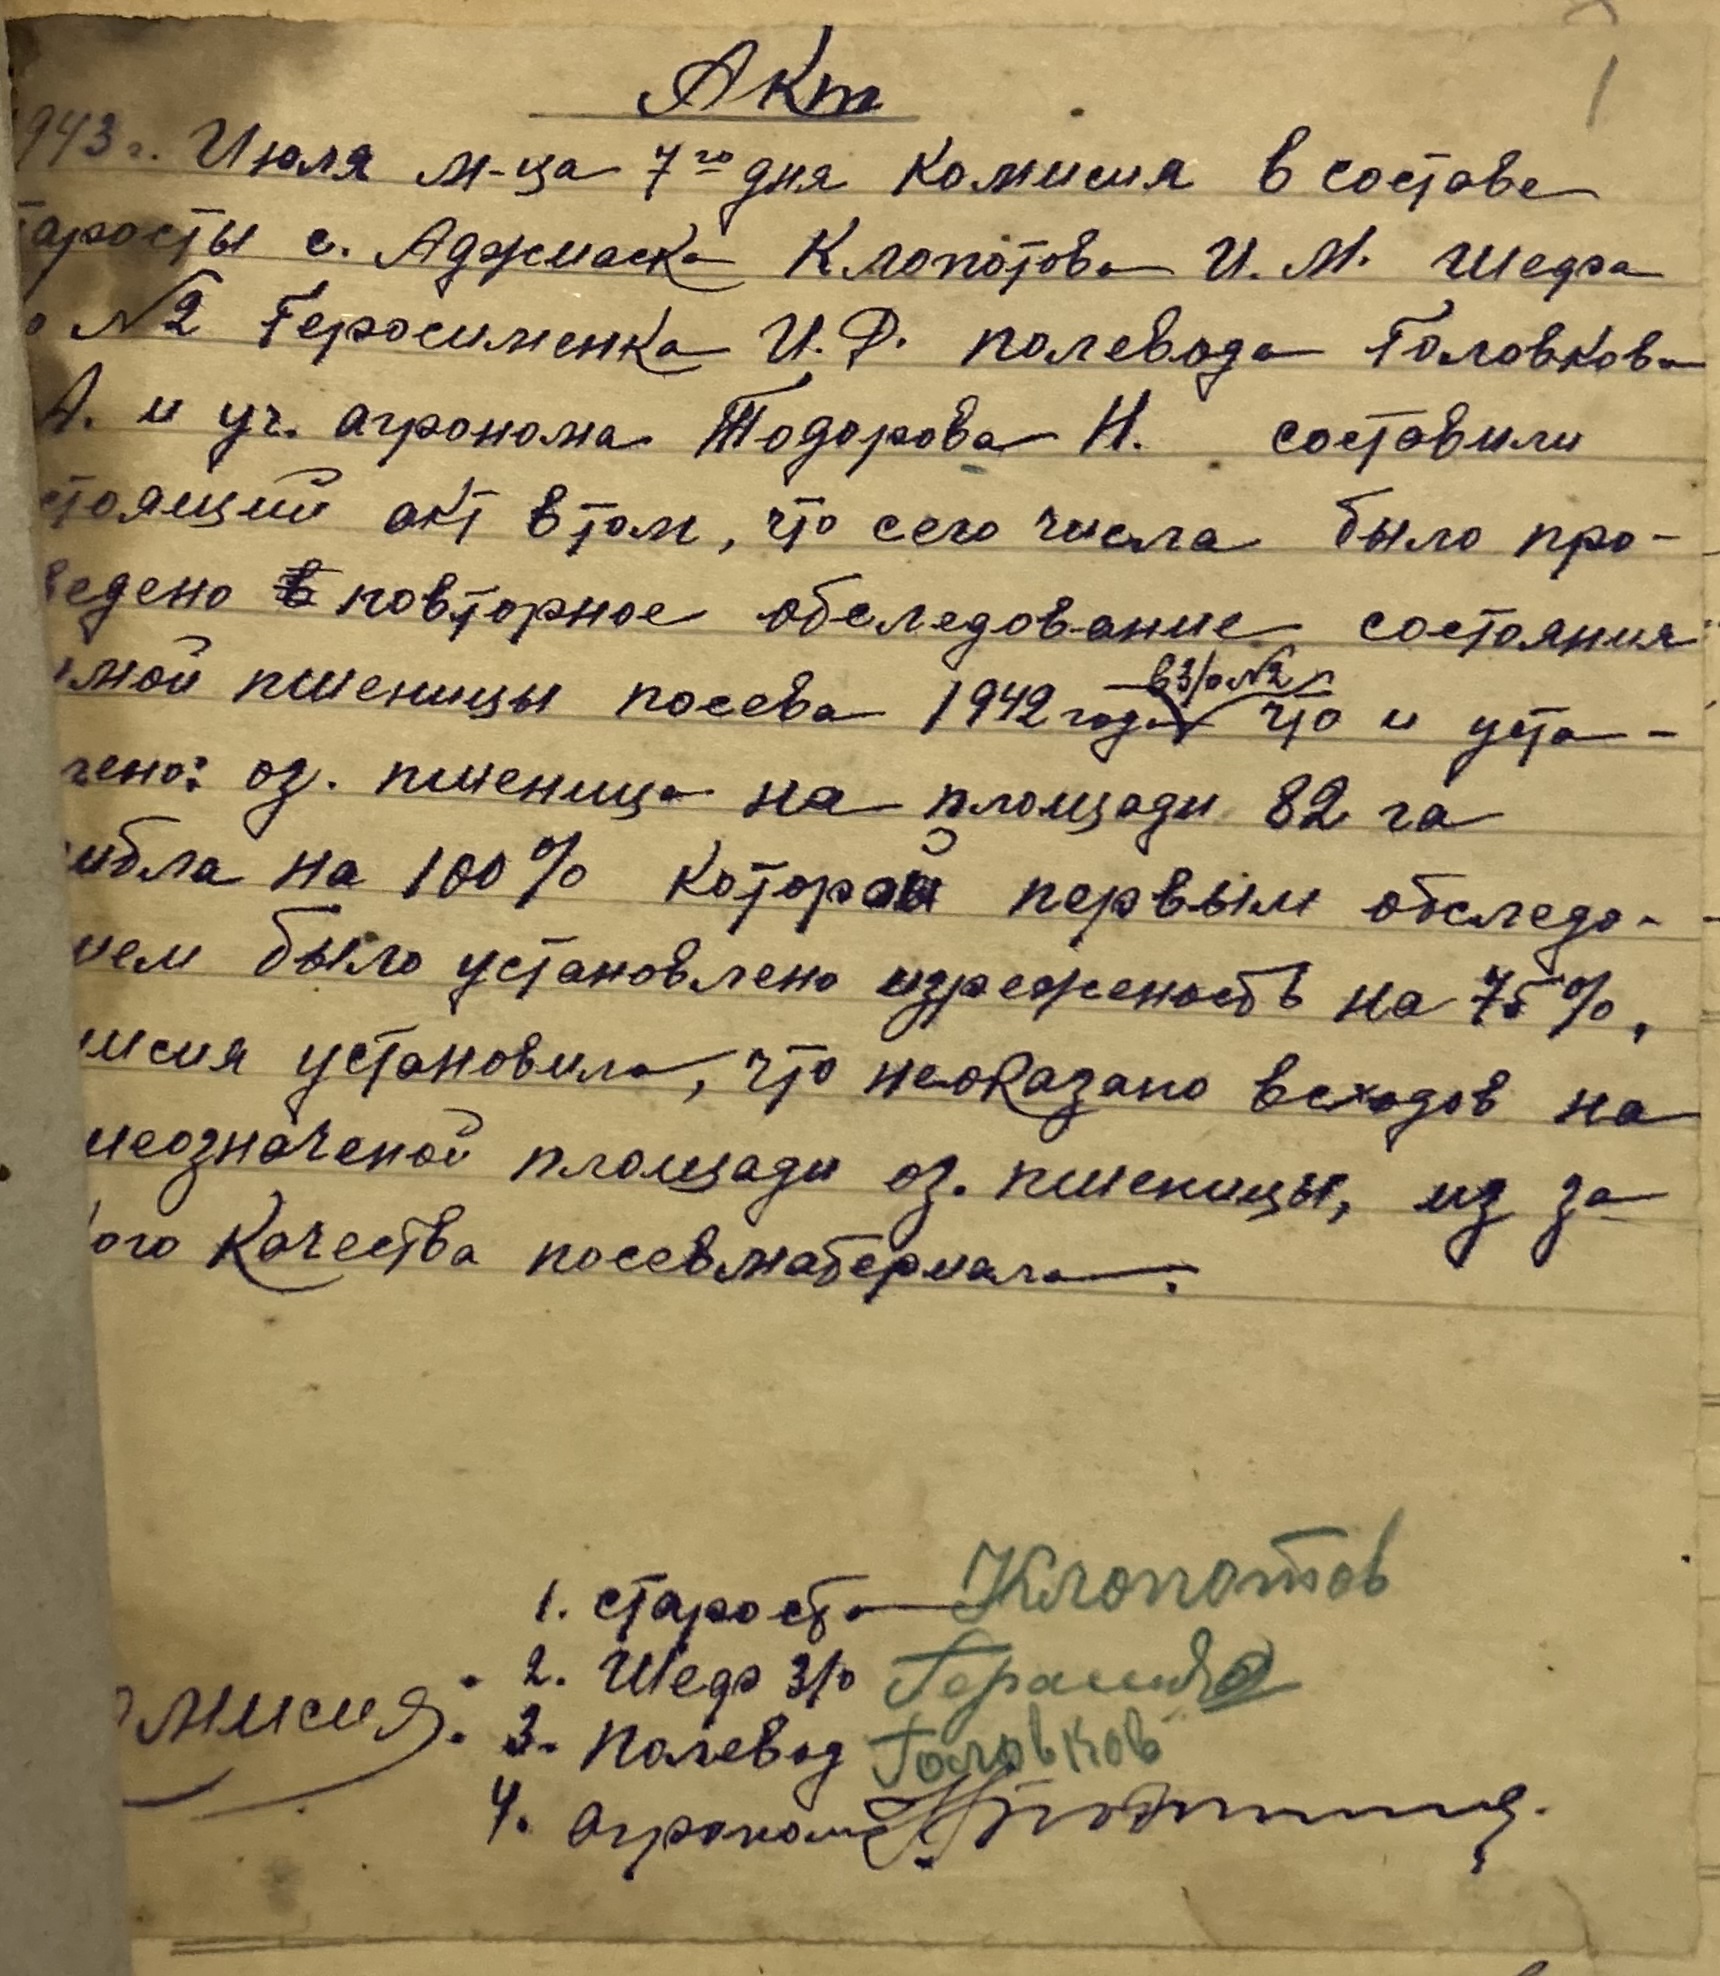 Акт
1943 г. Июля м-ца 7го дня Комисия в составе
таросты с. Аджиаска Клопотова И.М. Шефа
о №2 Геросименка И.Ф. полевода Головкова
А. и уч. агронома Тодорова Н. составили
стоящий акт в том, что сего числа было про-
ведено повторное обследование состояния
имой пшеницы посева 1942 года в З/о №2 что и уста-
лено: оз. пшеница на площади 82 га
ибла на 100% которой первым обследо-
нием было установлено изреженость на 75%,
мисия установила, что неоказано всходов на
шеозначеной площади оз. пшеницы, из за
ого качества посевматериала.
1. староста Клопотов
2. Шеф З/о Герасим
омисия: 3. Полевод Головков
4. агроном